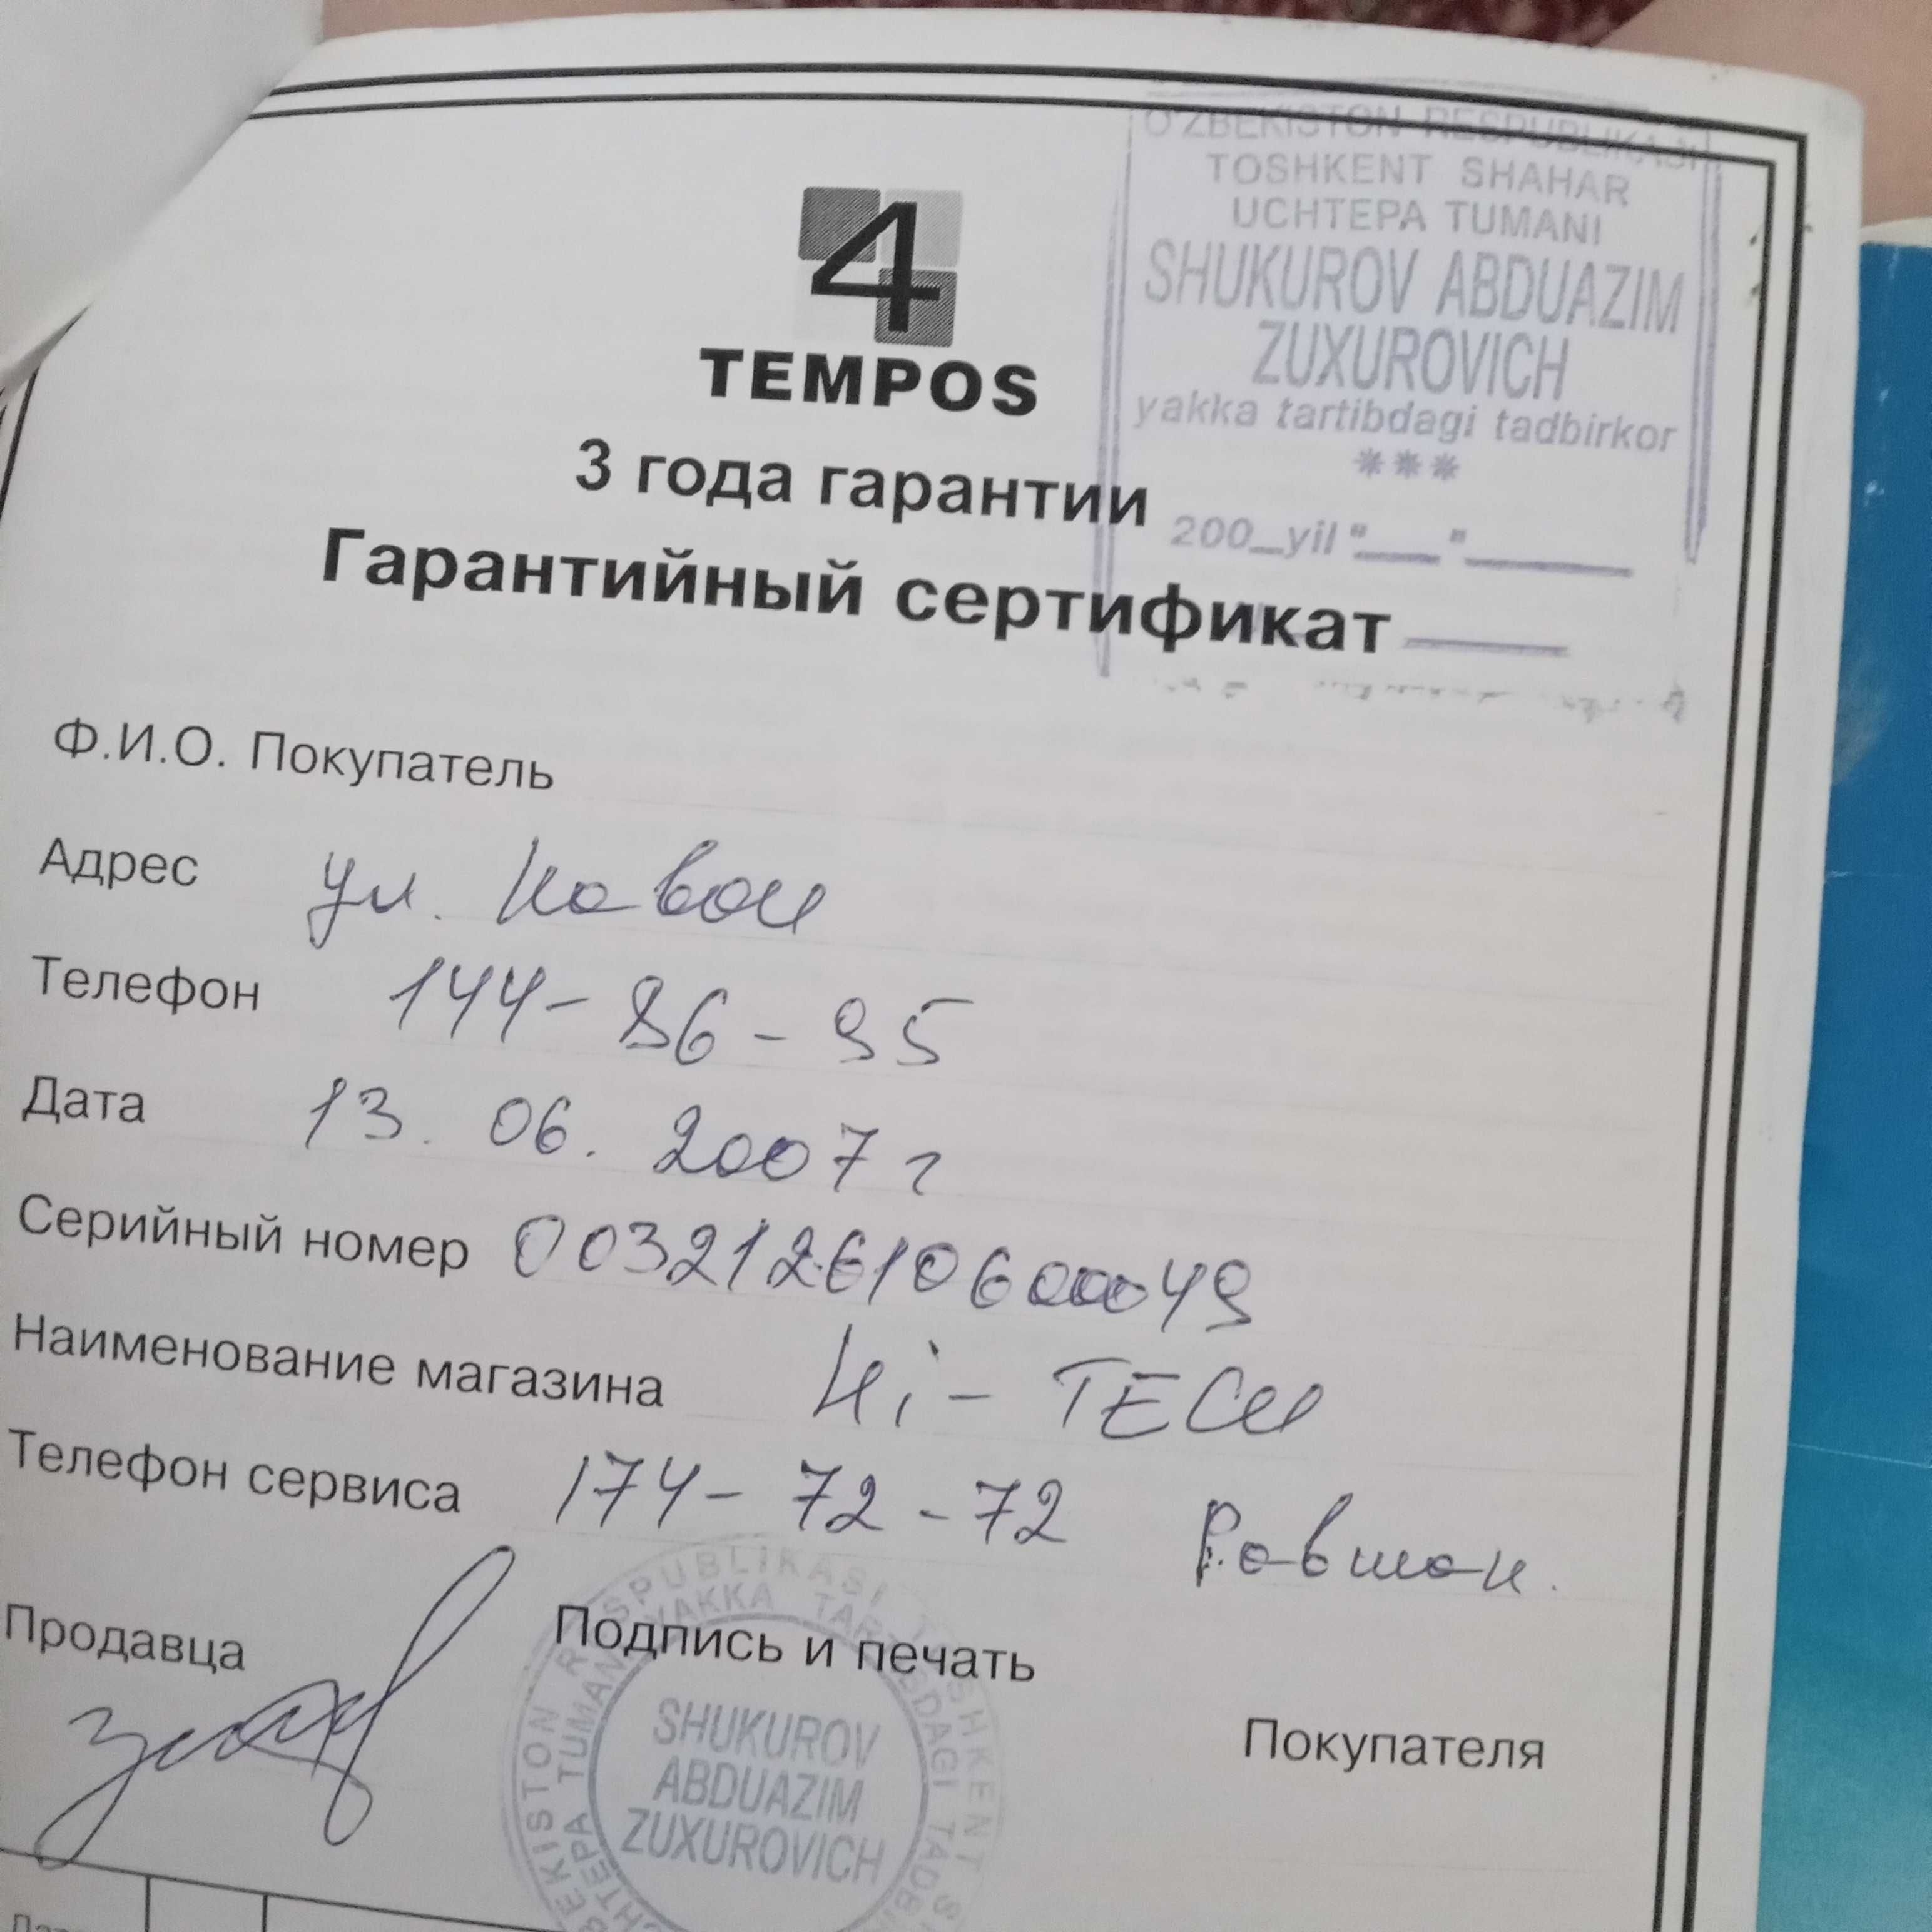 O'ZBEKISTON RESPUBLIKASI
TOSHKENT SHAHAR
UCHTEPA TUMANI
SHUKUROV ABDUAZIM
ZUXUROVICH
yakka tartibdagi tadbirkor
***
200__yil "___" ______
4
TEMPOS
3 года гарантии
Гарантийный сертификат
Ф.И.О. Покупатель
Адрес ул. Навои
Телефон 144-86-95
Дата 13. 06. 2007 г
Серийный номер
Наименование магазина Hi-TECH
Телефон сервиса 174-72-72 Равшан.
Продавца Подпись и печать Покупателя
SHUKUROV
ABDUAZIM
ZUXUROVICH